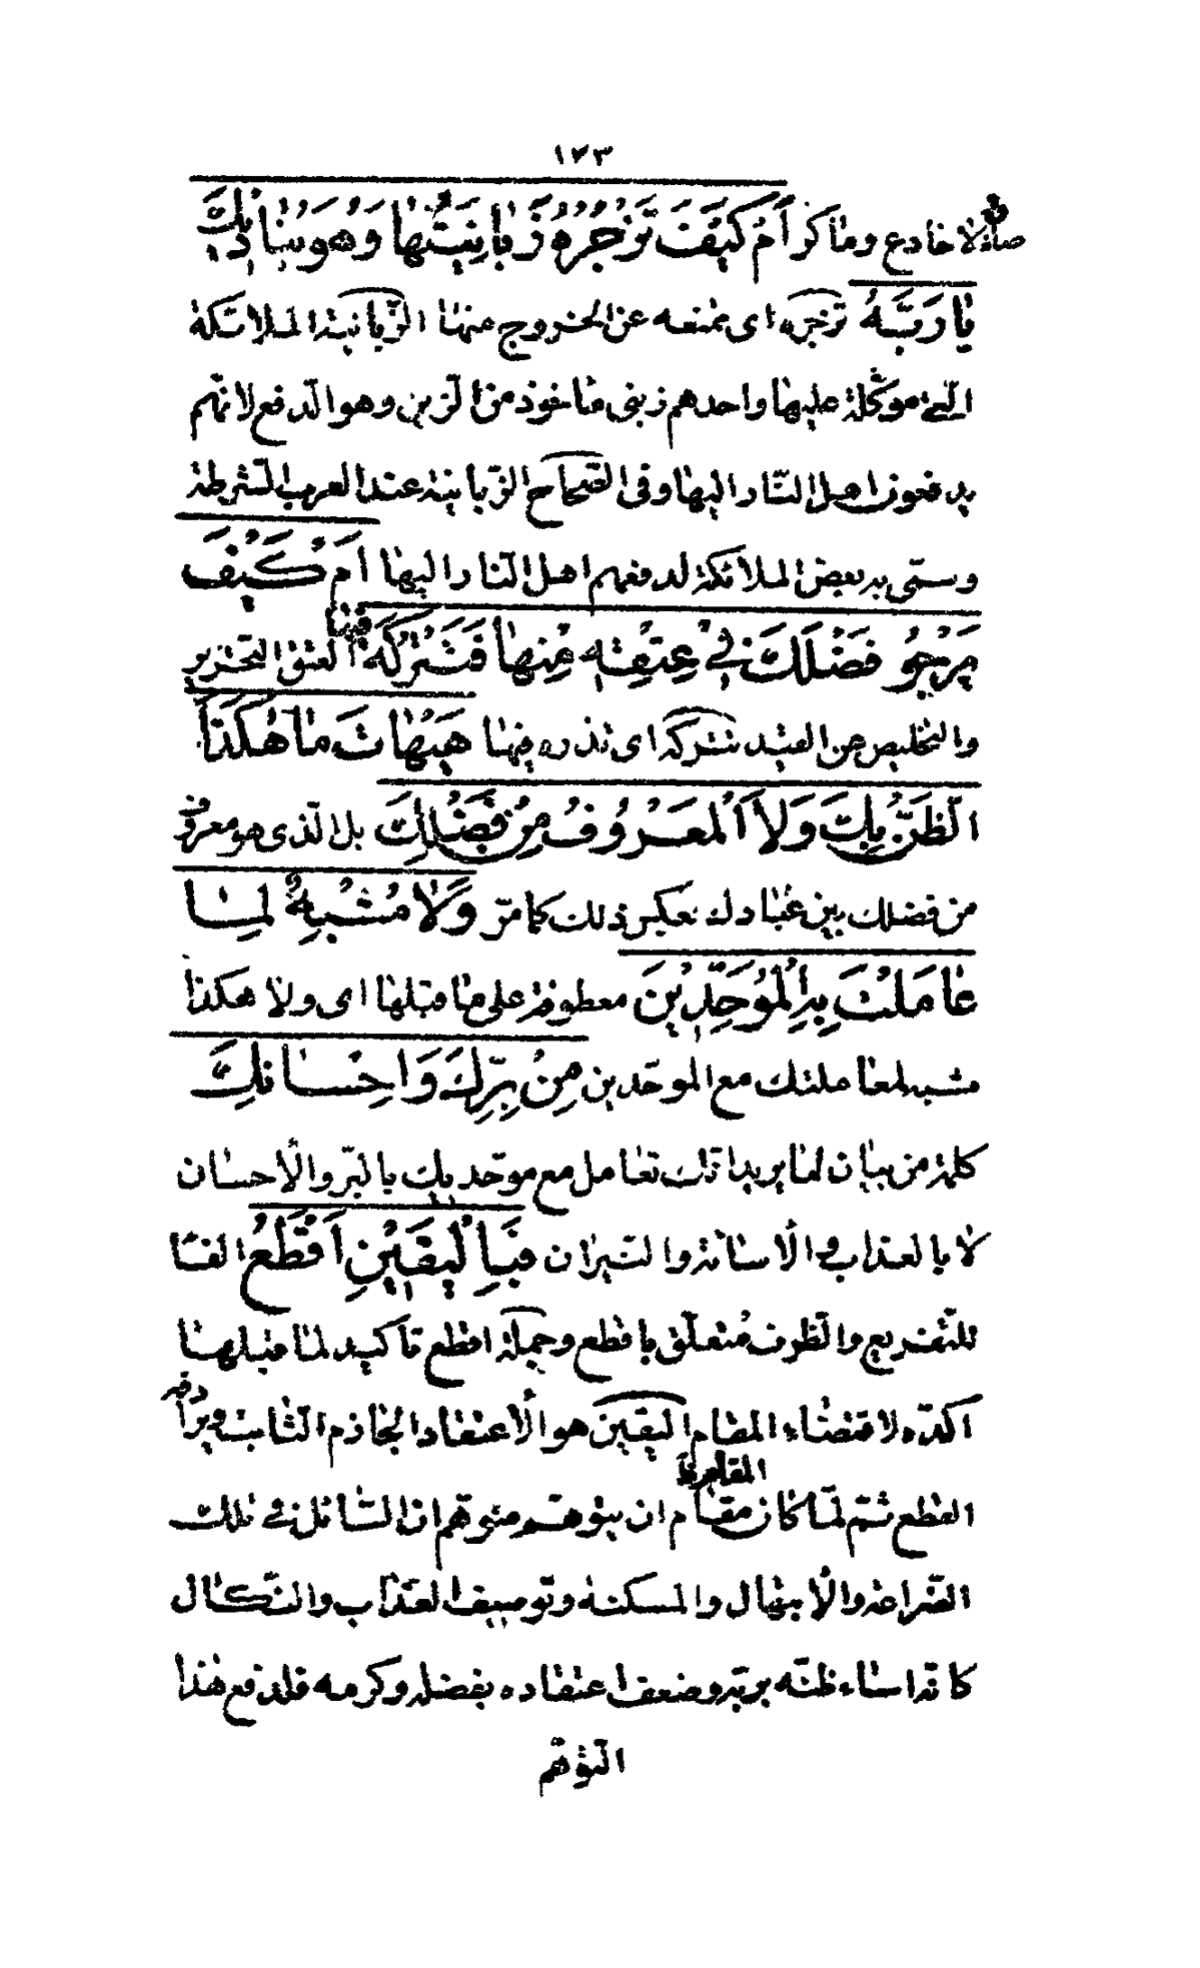 ١٧٣
صادق لا خادع وماكر أَمْ كَيْفَ تَزْجُرُهُ زَبَانِيَتُهَا وَهُوَ يُنَادِيكَ
يَا رَبَّهُ تزجره اى تمنعه عن الخروج منها الزّبانية الملائكة
الّتى موكّلة عليها واحدهم زبنى مأخوذ من الزبن وهو الدفع لانّهم
يدفعون اهل النّار اليها وفى الصّحاح الزّبانية عند العرب الشرطة
وسمّى به بعض الملائكة لدفعهم اهل النار اليها أَمْ كَيْفَ
يَرْجُو فَضْلَكَ فِي عِتْقِهِ مِنْهَا فَتَتْرُكَهُ فيها العتق التحرير
والتخليص من القيد تتركه اى تذره فيها هَيْهَاتَ مَا هٰكَذَا
الظَّنُّ بِكَ وَلَا الْمَعْرُوفُ مِنْ فَضْلِكَ بل الّذى هو معروف
من فضلك بين عبادك بعكس ذلك كما مرّ وَلَا مُشْبِهٌ لِمَا
عَامَلْتَ بِهِ الْمُوَحِّدِينَ معطوفة على ما قبلها اى ولا هكذا
مشبه لمعاملتك مع الموحّدين مِنْ بِرِّكَ وَاِحْسَانِكَ
كلمة من بيان لما يريد انّك تعامل مع موحّديك بالبرّ والأحسان
لا بالعذاب والأسائة والنّيران فَبِالْيَقِينِ أَقْطَعُ الفاء
للتّفريع والظّرف مُتعلّق باقطع وجملة اقطع تأكيد لما قبلها
اكدّه لاقتضاء المقام اليقين هو الأعتقاد الجازم الثّابت ويرادفه
المقام ظ
القطع ثمّ لمّا كان مقام ان يتوهّم متوهّم انّ السّائل فى تلك
الضّراعة والأبتهال والمسكنة وتوصيف العذاب والنّكال
كانّه اساء ظنّه بربّه وضعف اعتقاده بفضله وكرمه فلدفع هذا
التوهّم